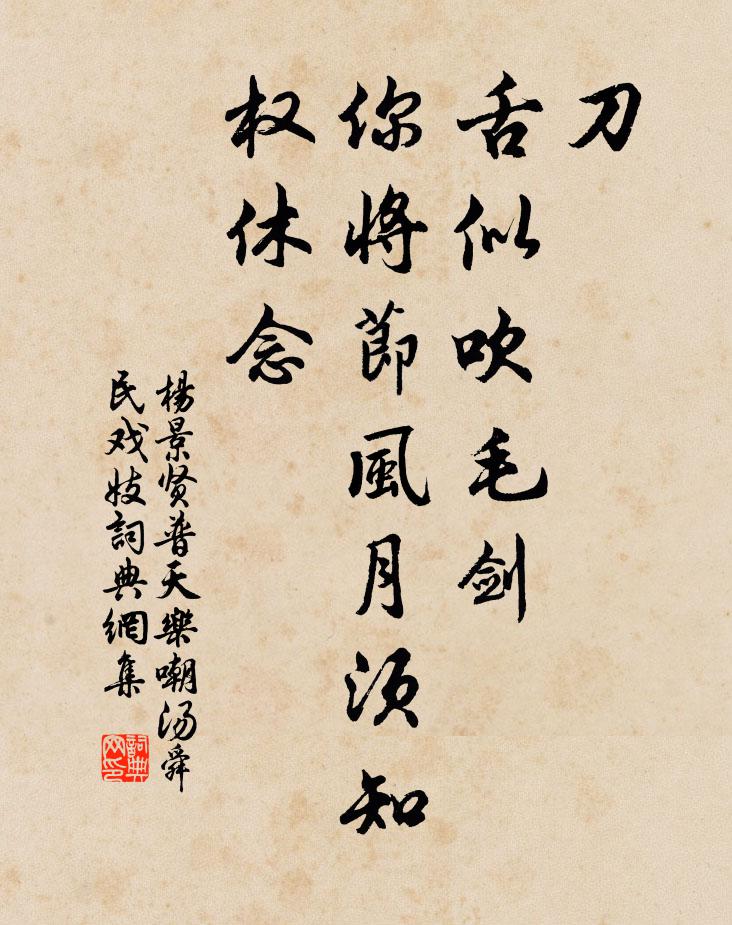 刀
舌似吹毛剑
你将節風月须知
权休念
楊景贤普天樂嘲汤舜
民戏妓詞典網集
詞典
网印